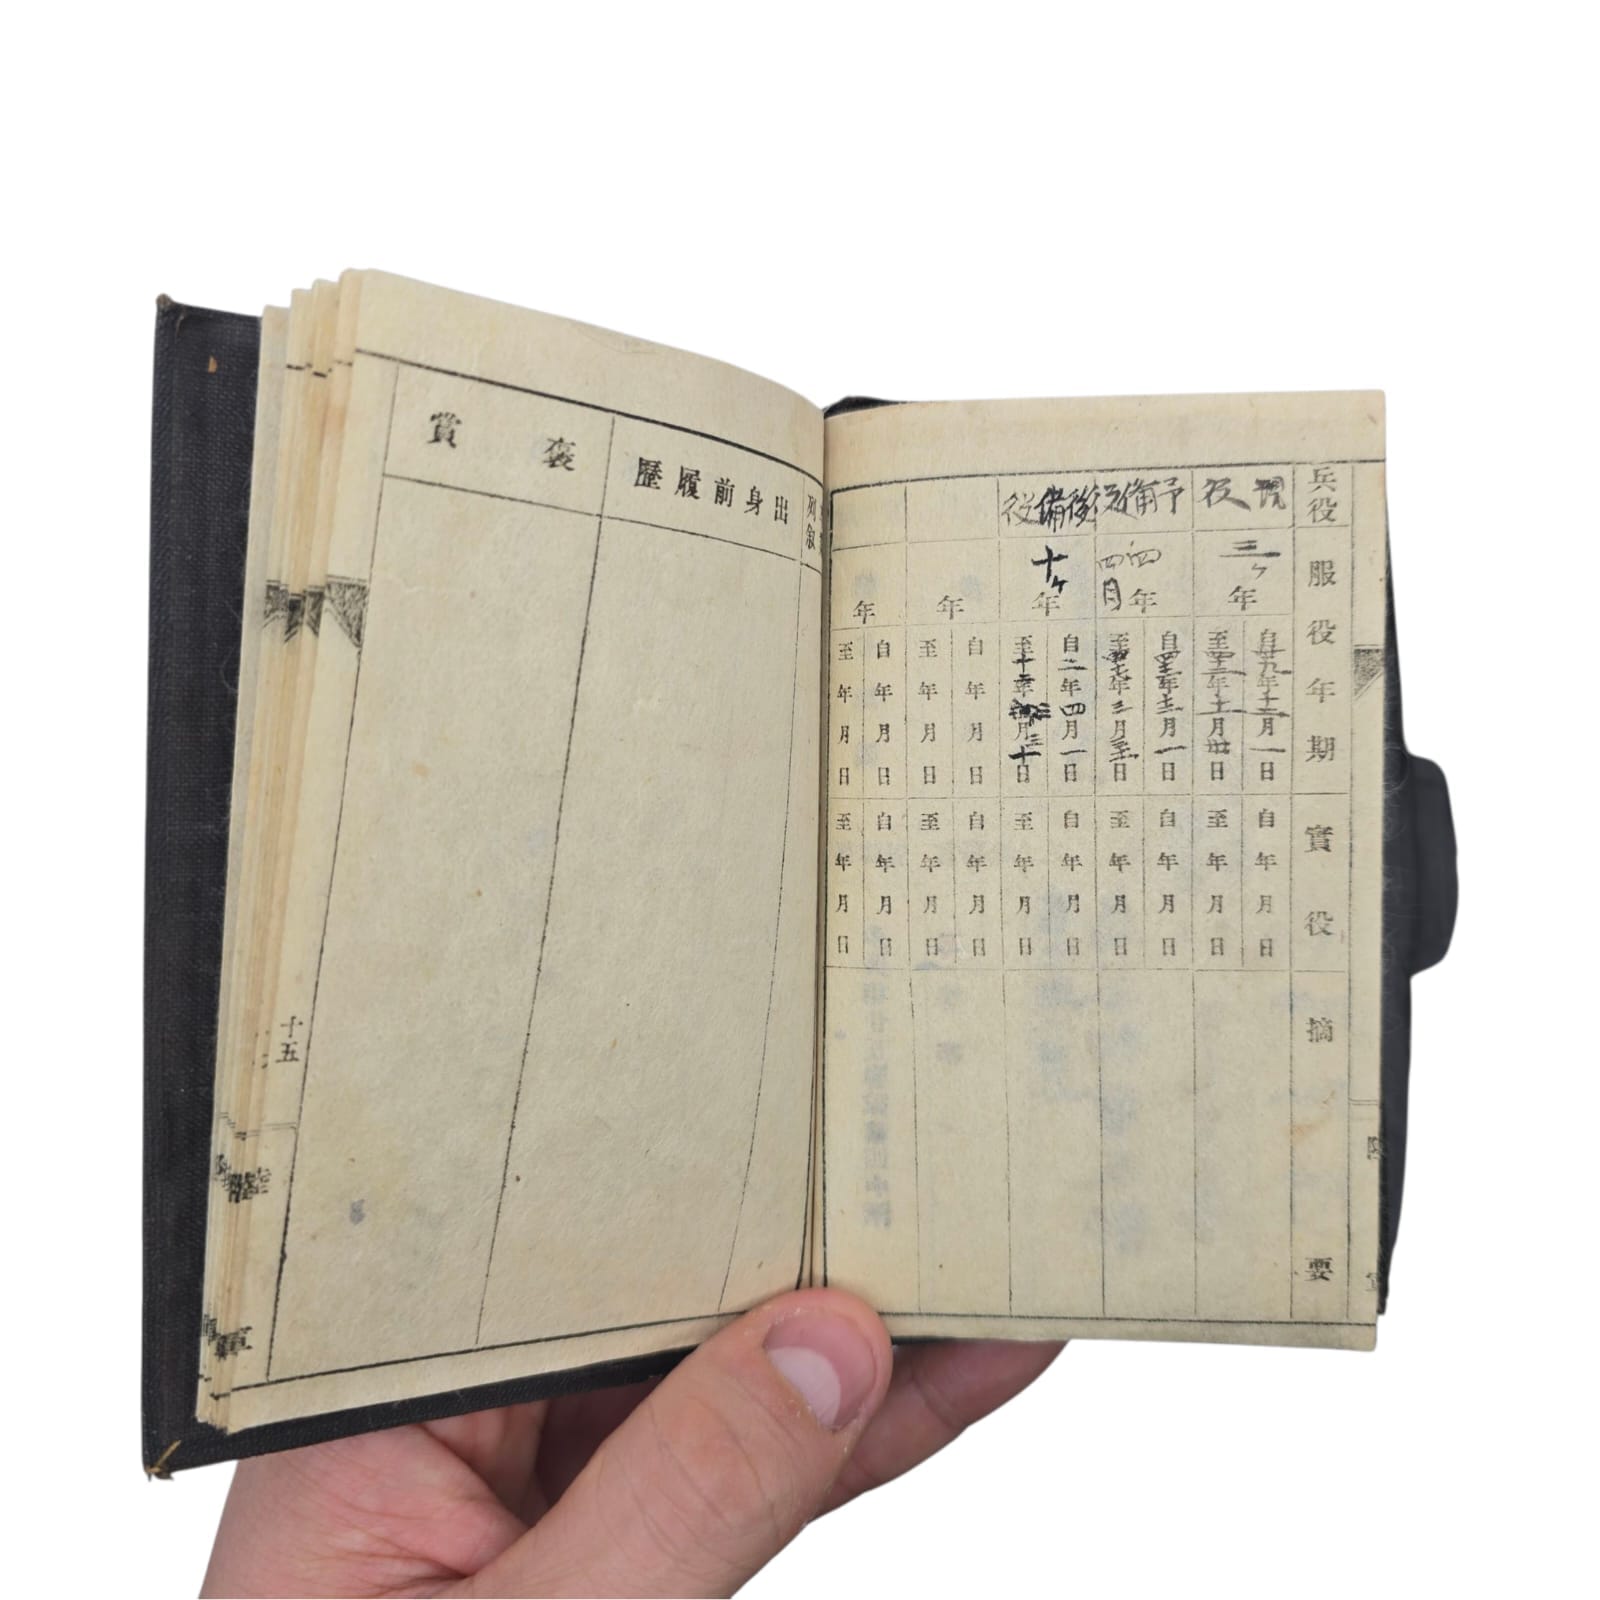 兵役 服役年期 實役 摘要
現役
三ヶ年
自卅九年十二月一日
至四十二年十一月卅日
自 年 月 日
至 年 月 日
予備役
四年
四月
自四十二年十二月一日
至 年三月 日
自 年 月 日
至 年 月 日
後備役
十ヶ年
自二年四月一日
至十二年 月 日
自 年 月 日
至 年 月 日
年
自 年 月 日
至 年 月 日
自 年 月 日
至 年 月 日
年
自 年 月 日
至 年 月 日
自 年 月 日
至 年 月 日
出身前履歷
褒賞
十五
陸軍